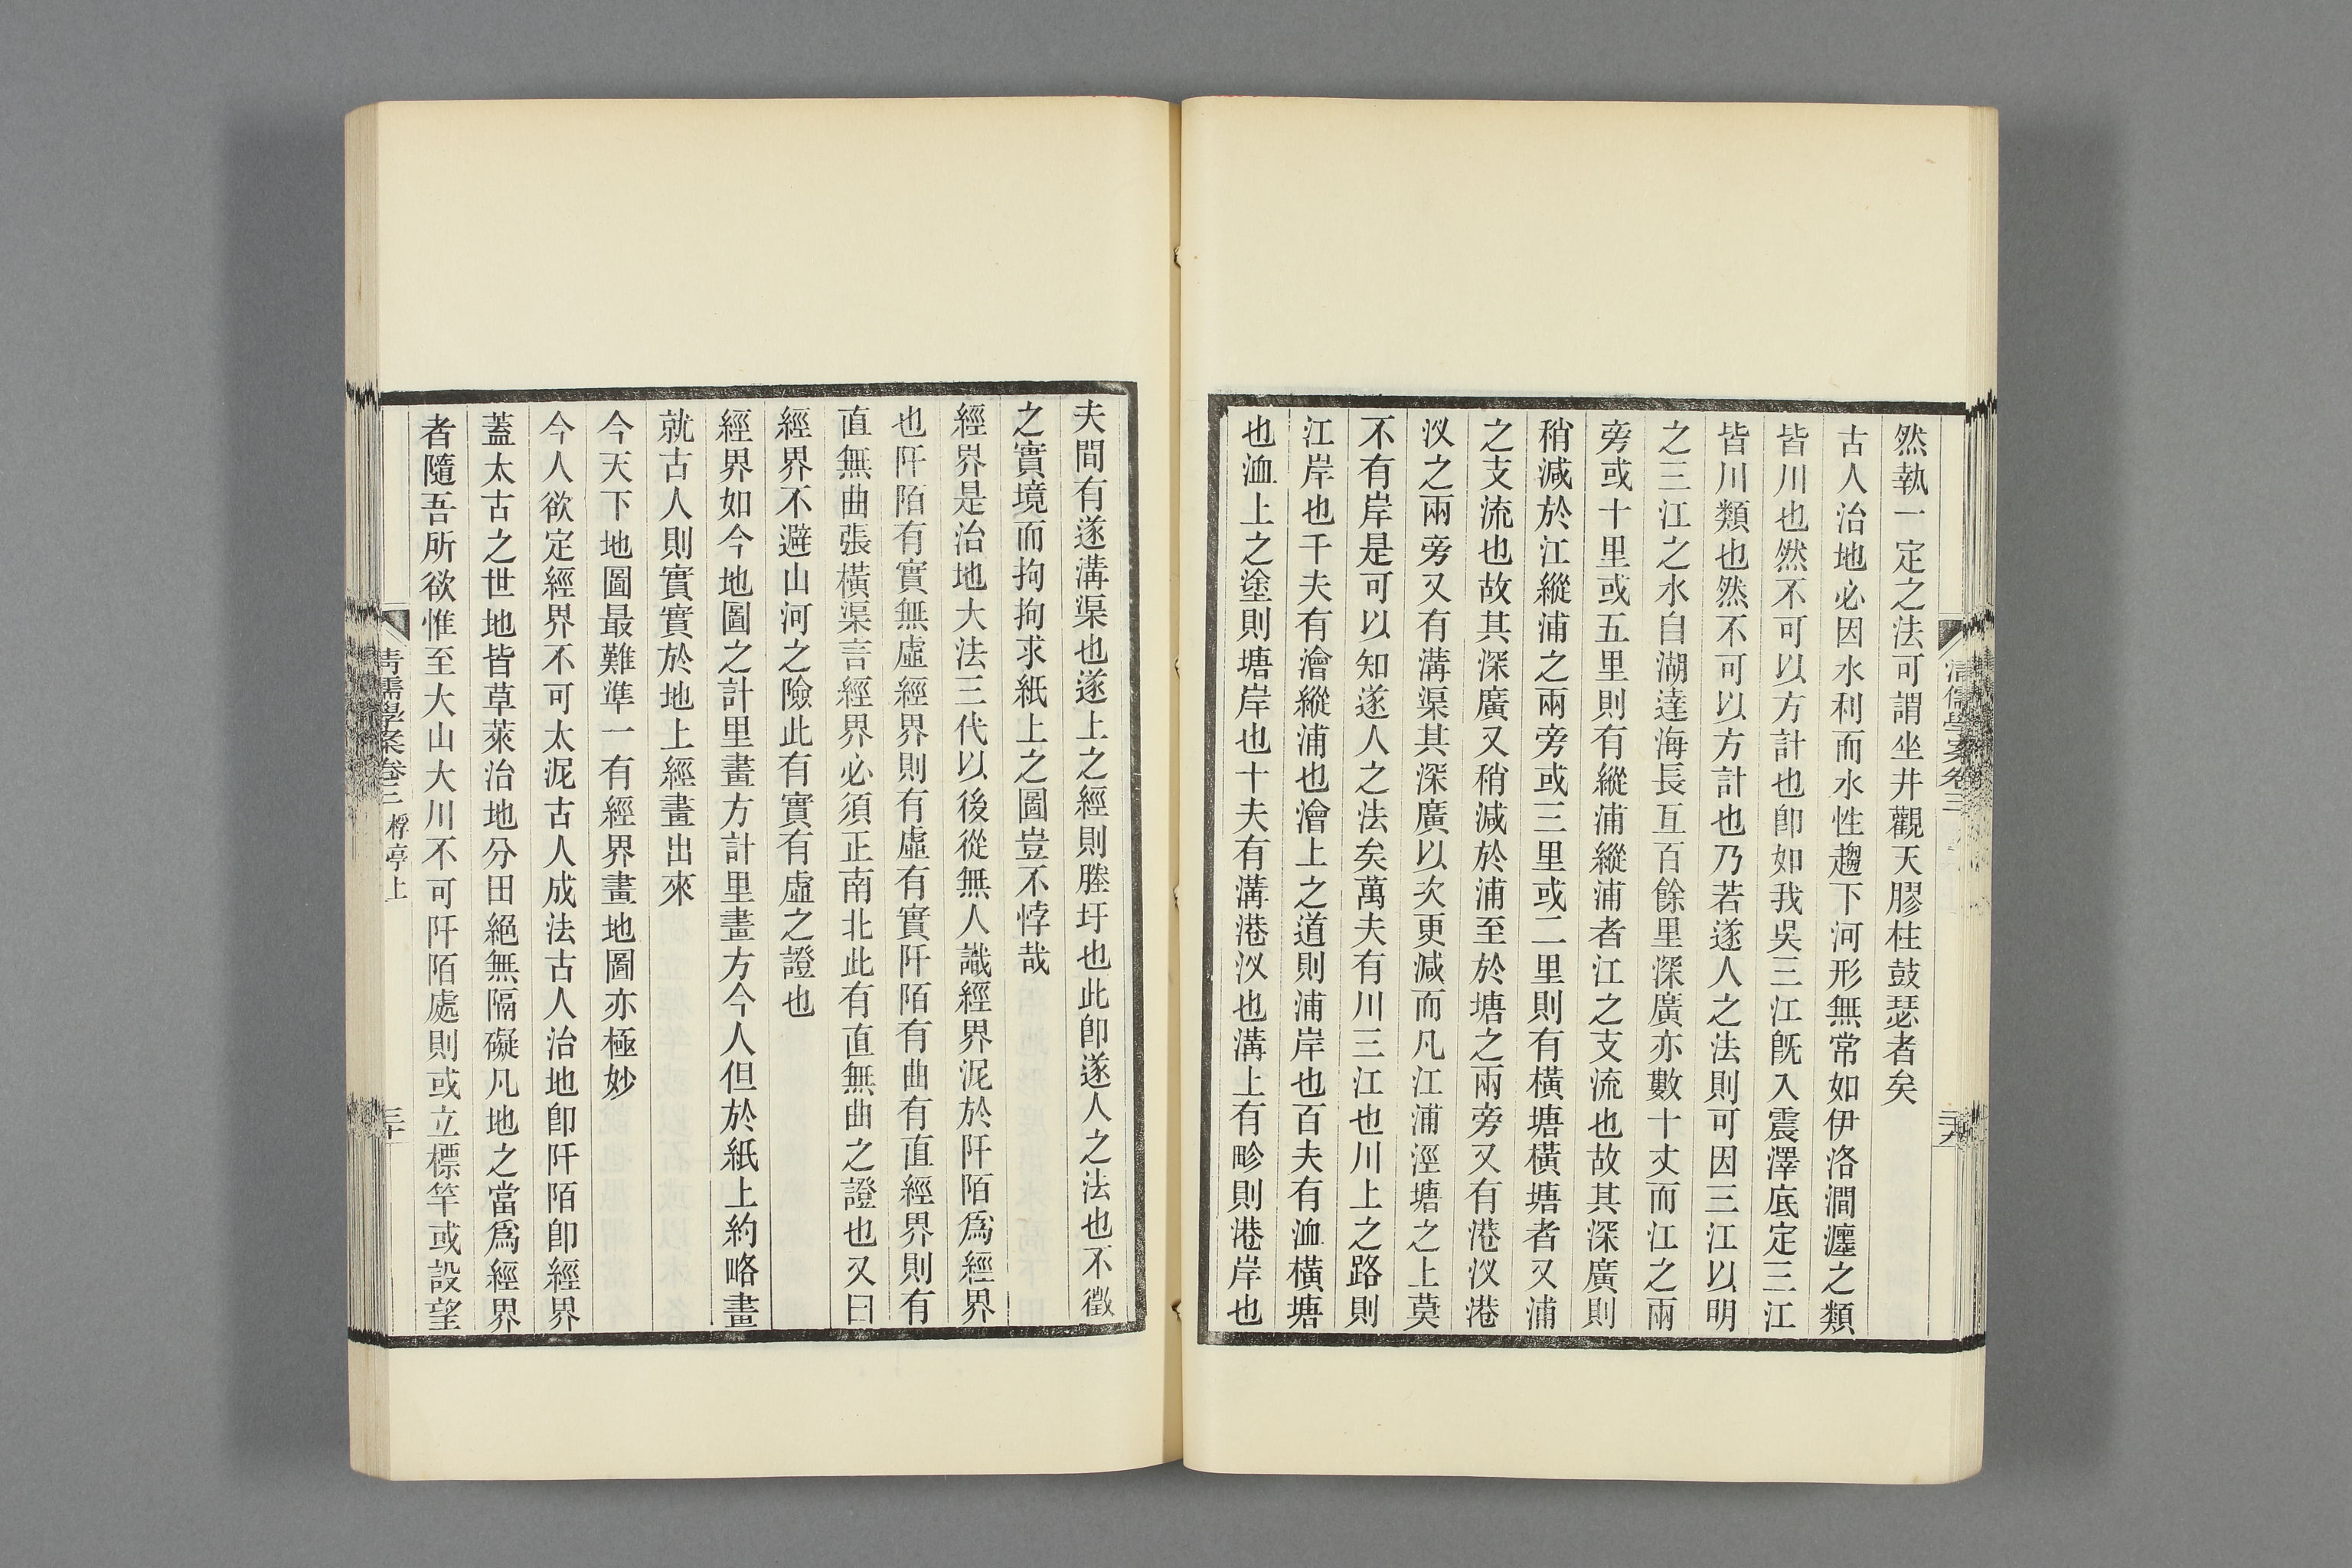 清儒學案卷三
然執一定之法可謂坐井觀天膠柱鼓瑟者矣
古人治地必因水利而水性趨下河形無常如伊洛澗瀍之類
皆川也然不可以方計也卽如我吳三江旣入震澤底定三江
皆川類也然不可以方計也乃若遂人之法則可因三江以明
之三江之水自湖達海長亙百餘里深廣亦數十丈而江之兩
旁或十里或五里則有縱浦縱浦者江之支流也故其深廣則
稍減於江縱浦之兩旁或三里或二里則有橫塘橫塘者又浦
之支流也故其深廣又稍減於浦至於塘之兩旁又有港汊港
汊之兩旁又有溝渠其深廣以次更減而凡江浦涇塘之上莫
不有岸是可以知遂人之法矣萬夫有川三江也川上之路則
江岸也千夫有澮縱浦也澮上之道則浦岸也百夫有洫橫塘
也洫上之塗則塘岸也十夫有溝港汊也溝上有畛則港岸也
夫間有遂溝渠也遂上之經則塍圩也此卽遂人之法也不徵
之實境而拘拘求紙上之圖豈不悖哉
經界是治地大法三代以後從無人識經界泥於阡陌爲經界
也阡陌有實無虛經界則有虛有實阡陌有曲有直經界則有
直無曲張橫渠言經界必須正南北此有直無曲之證也又曰
經界不避山河之險此有實有虛之證也
經界如今地圖之計里畫方計里畫方今人但於紙上約略畫
就古人則實實於地上經畫出來
今天下地圖最難準一有經界畫地圖亦極妙
今人欲定經界不可太泥古人成法古人治地卽阡陌卽經界
蓋太古之世地皆草萊治地分田絕無隔礙凡地之當爲經界
者隨吾所欲惟至大山大川不可阡陌處則或立標竿或設望
清儒學案卷三 桴亭上 三十